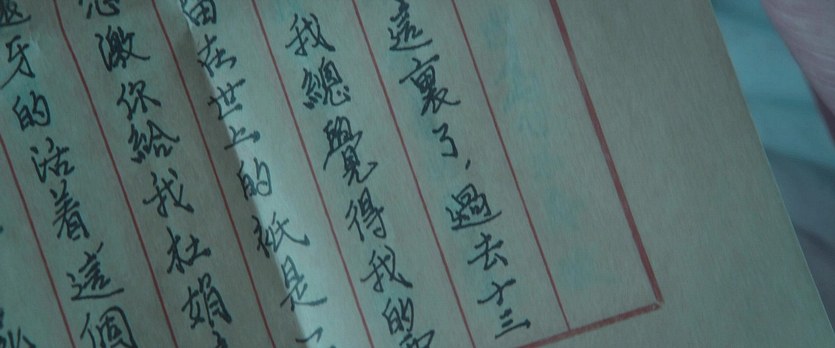 這裏了，過去十三
我總覺得我的
在世上的祇是
激你給我杜娟
牙的活着這個